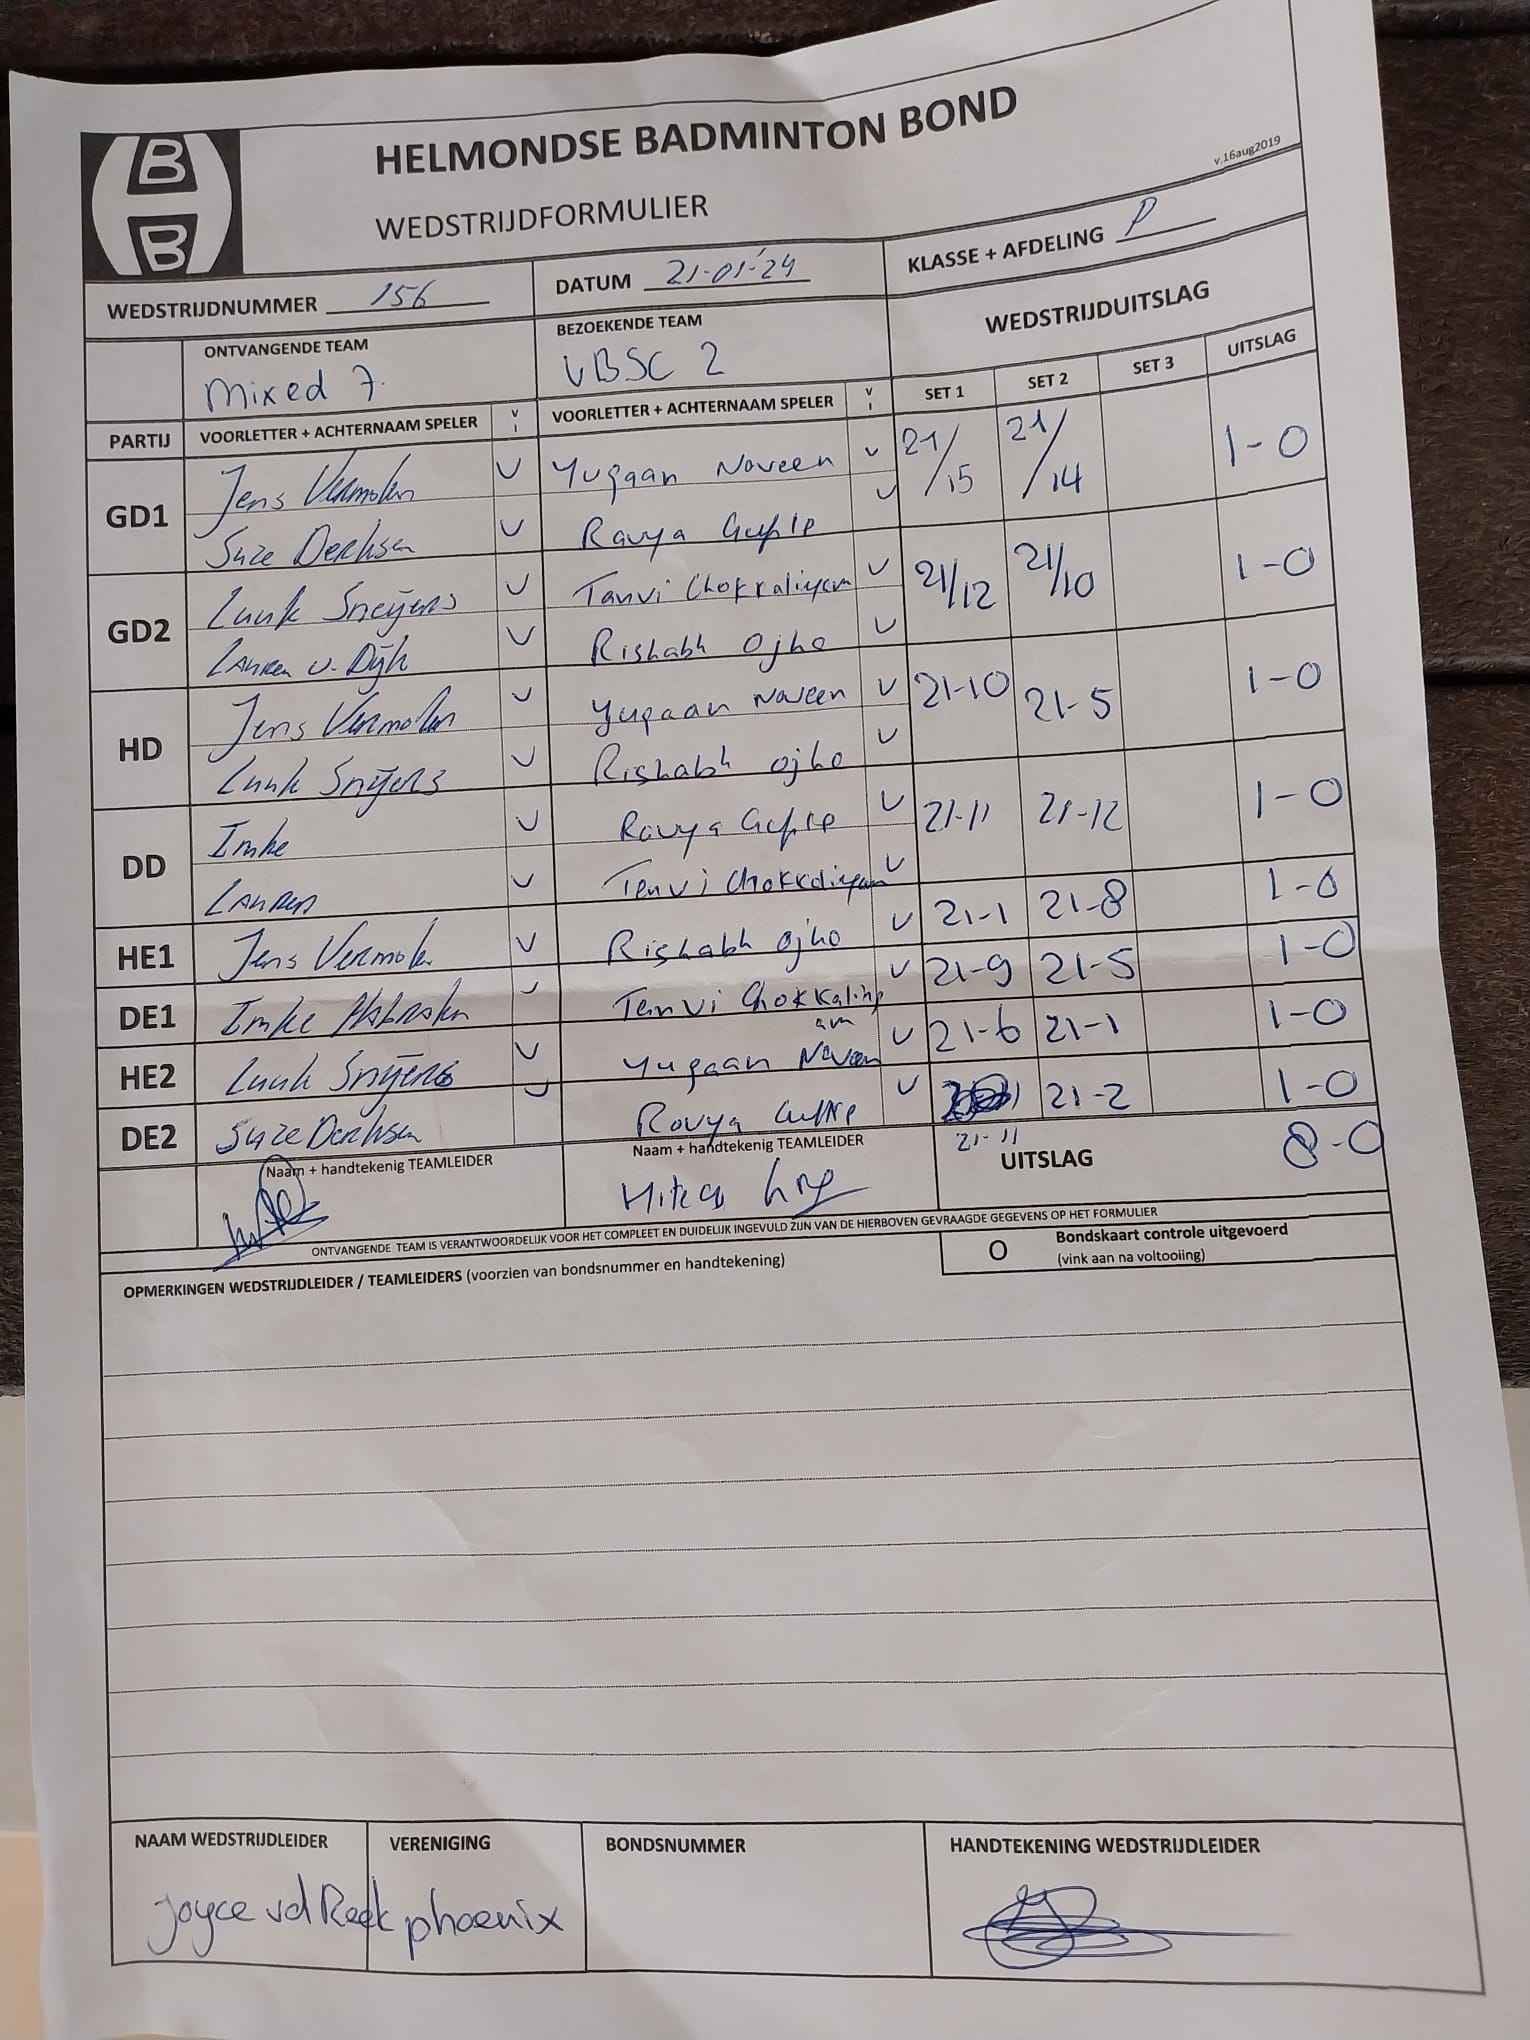 HELMONDSE BADMINTON BOND
WEDSTRIJDFORMULIER
v.16aug2019
WEDSTRIJDNUMMER 156 DATUM 21-01-'24 KLASSE + AFDELING P
ONTVANGENDE TEAM BEZOEKENDE TEAM WEDSTRIJDUITSLAG
Mixed 7. VBSC 2
PARTIJ VOORLETTER + ACHTERNAAM SPELER V I VOORLETTER + ACHTERNAAM SPELER V I SET 1 SET 2 SET 3 UITSLAG
GD1 Jens Vermolen V Yugaan Naveen V 21/15 21/14 1-0
Suze Derksen V Ravya V
GD2 Luuk Sneijers V Tanvi Chokkalingam V 21/12 21/10 1-0
Lauren v. Dijk V Rishabh Ojha V
HD Jens Vermolen V Yugaan Naveen V 21-10 21-5 1-0
Luuk Snijers V Rishabh Ojha V
DD Imke V Ravya V 21-11 21-12 1-0
Lauren V Tanvi Chokkalingam V
HE1 Jens Vermolen V Rishabh Ojha V 21-1 21-8 1-0
DE1 Imke V Tanvi Chokkalingam V 21-9 21-5 1-0
HE2 Luuk Snijers V Yugaan Naveen V 21-6 21-1 1-0
DE2 Suze Derksen V Ravya V 21-2 1-0
21-11
Naam + handtekenig TEAMLEIDER Naam + handtekenig TEAMLEIDER UITSLAG 8-0
ONTVANGENDE TEAM IS VERANTWOORDELIJK VOOR HET COMPLEET EN DUIDELIJK INGEVULD ZIJN VAN DE HIERBOVEN GEVRAAGDE GEGEVENS OP HET FORMULIER
OPMERKINGEN WEDSTRIJDLEIDER / TEAMLEIDERS (voorzien van bondsnummer en handtekening)
O Bondskaart controle uitgevoerd
(vink aan na voltooiing)
NAAM WEDSTRIJDLEIDER VERENIGING BONDSNUMMER HANDTEKENING WEDSTRIJDLEIDER
Joyce vd Reek phoenix